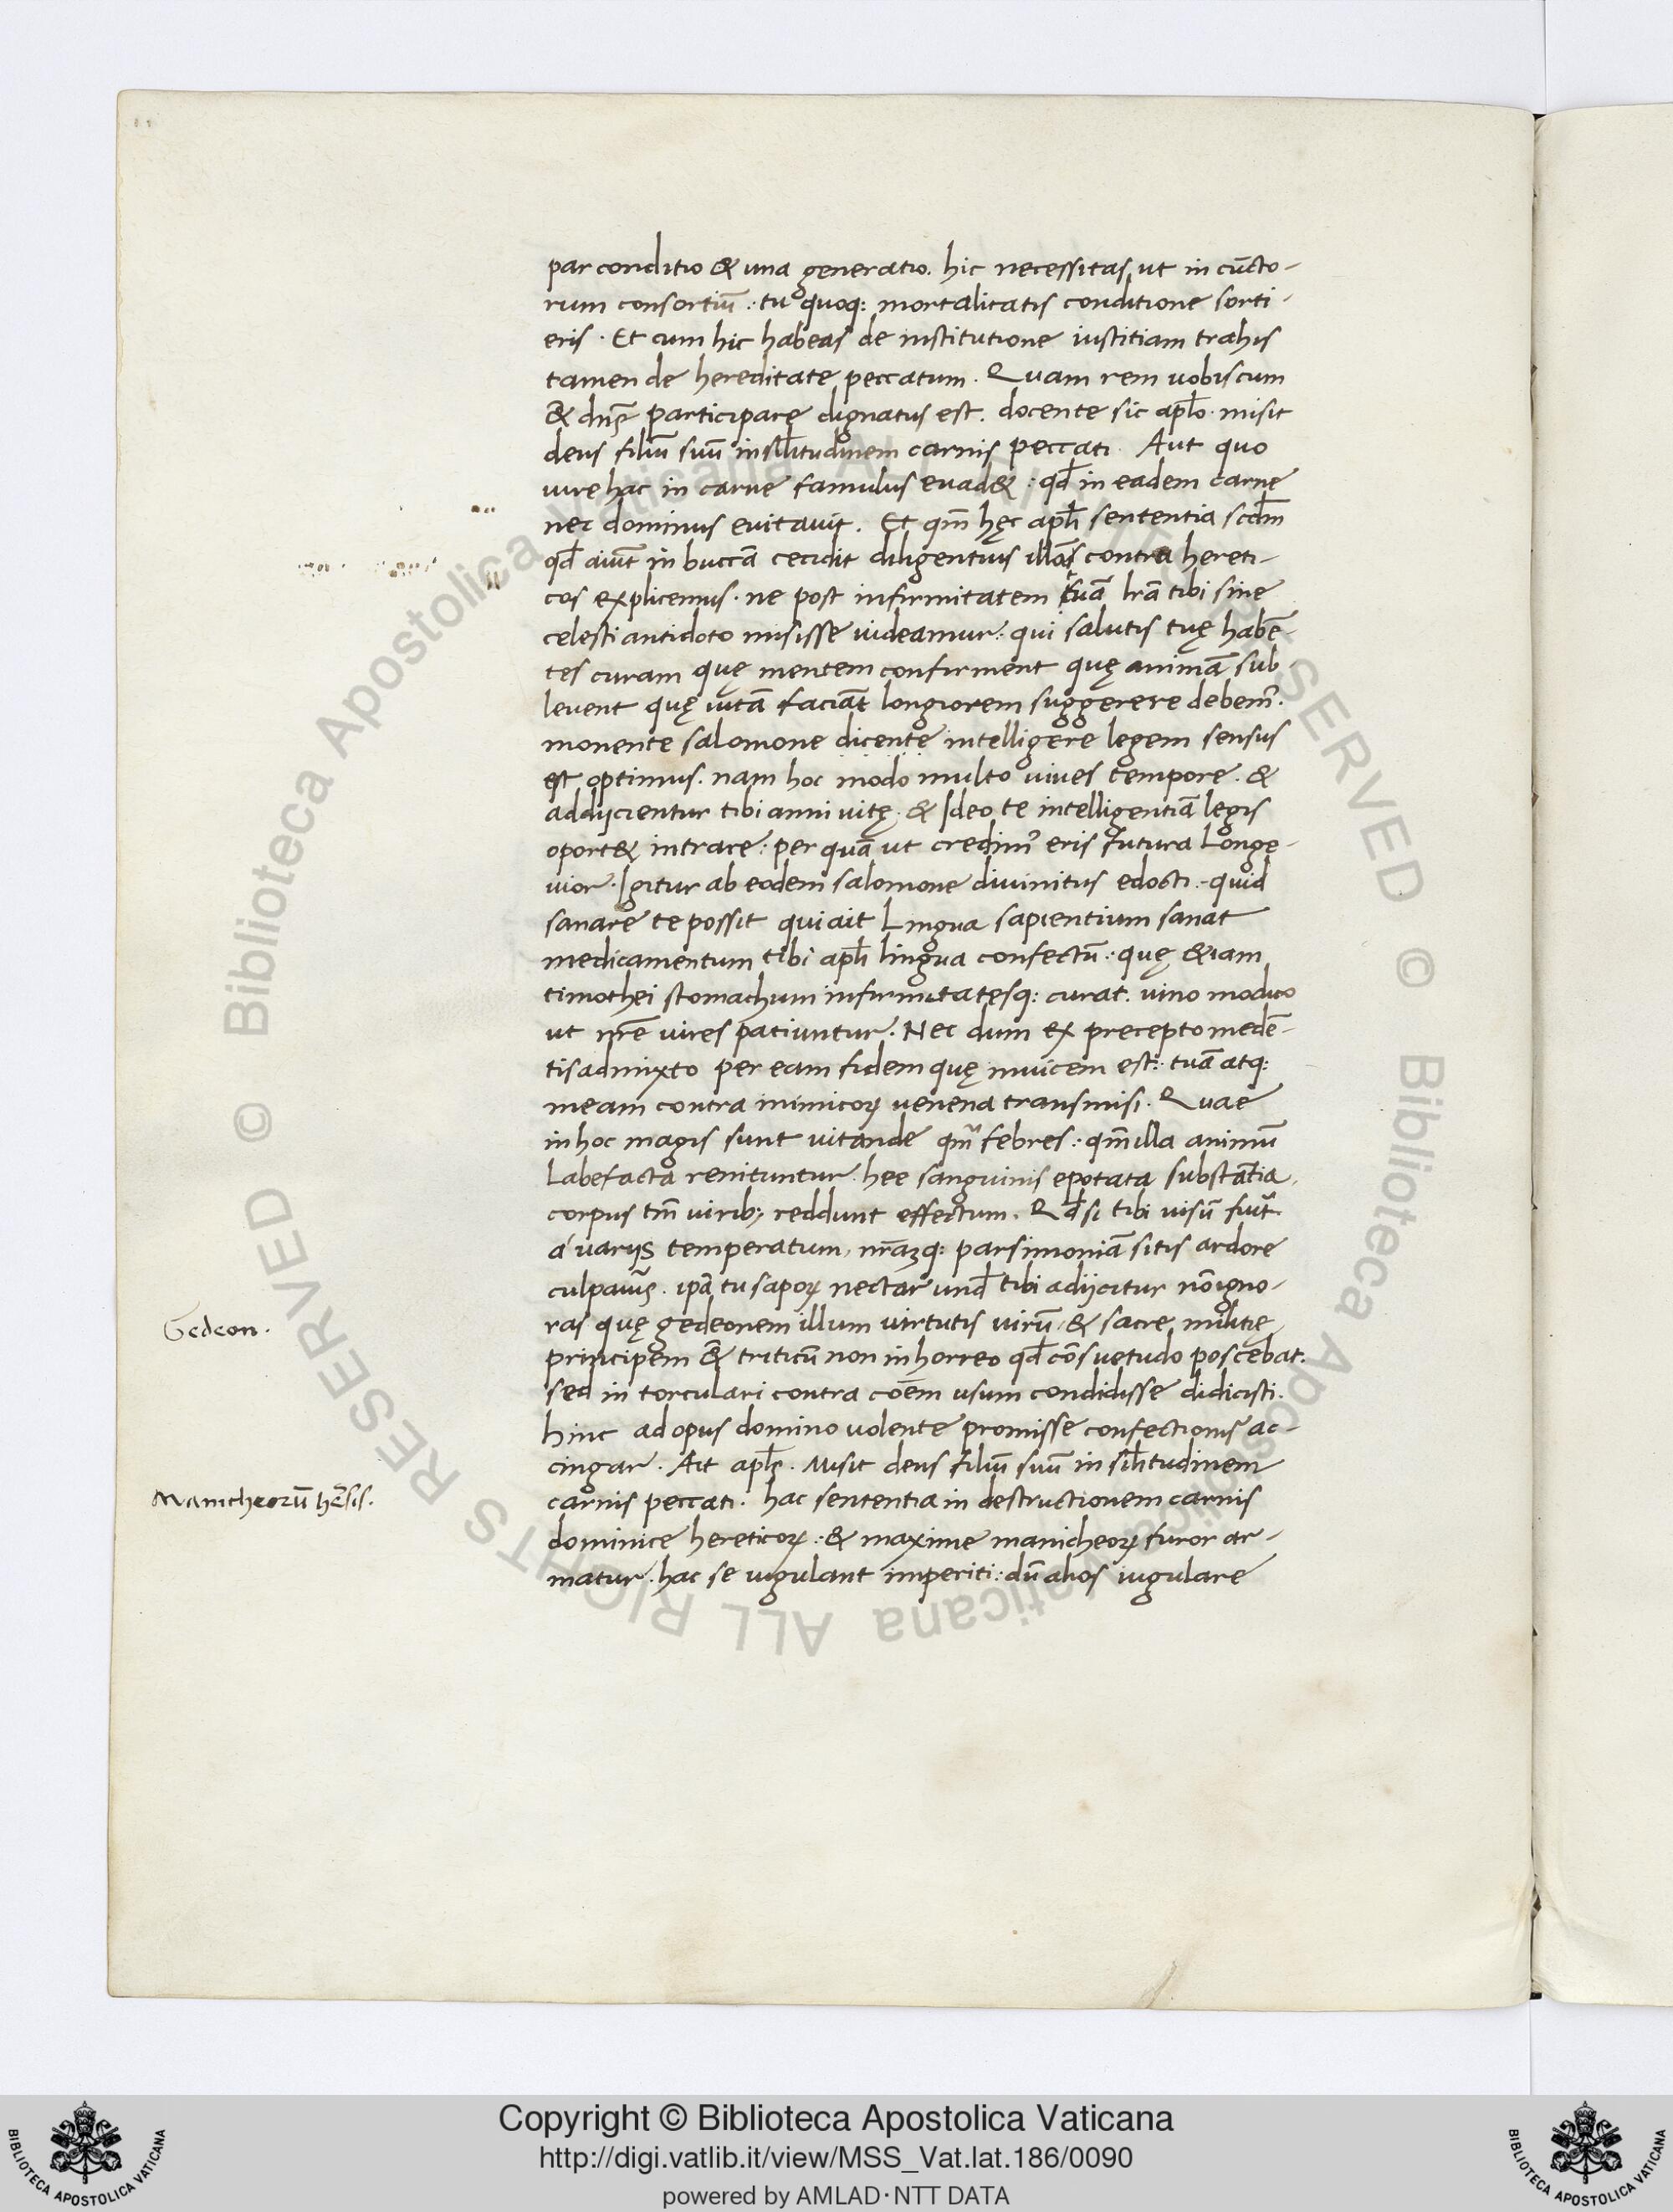 par conditio & una generatio. hic necessitas ut in cūcto-
rum consortiū : tu quoq: mortalitatis conditione sorti-
eris. Et cum hic habeas de institutione iustitiam trahis
tamen de hereditate peccatum. Quam rem uobiscum
& dn̄s participare dignatus est. docente sic apl̄o. misit
deus filiū suū in sil̄itudinem carnis peccati. Aut quo
iure hac in carne famulus euad& : qd̄ in eadem carne
nec dominus euitauit. Et qm̄ hęc apl̄i sententia scdm̄
qd̄ aiūt in buccā cecidit diligentius contra hereti-
cos explicemus. ne post infirmitatem tuā lr̄ā tibi sine
celesti antidoto misisse uideamur: qui salutis tuę habē-
tes curam quę mentem confirment quę animā sub
leuent quę uitā faciāt longiorem suggerere debem'.
monente salomone dicente intelligere legem sensus
est optimus. nam hoc modo multo uiues tempore. &
addijcientur tibi anni uitę. & Ideo te intelligentiā legis
oport& intrare: per quā ut credim' eris futura Longę-
uior. Igitur ab eodem salomone diuinitus edocti: quid
sanare te possit qui ait Lingua sapientium sanat
medicamentum tibi apl̄i lingua confectū: quę &iam
timothei stomachum infirmitatesq: curat. uino modico
ut nr̄e uires patiuntur. Nec dum ex precepto medē-
tis admixto per eam fidem quę inuicem est: tuā atq:
meam contra inimicoꝝ uenena transmisi. Quae
in hoc magis sunt uitande qm̄ febres: qm̄ illa animū
Labefacta renituntur. hee sanguinis epotata substātia.
corpus tm̄ uirib; reddunt effectum. Qd̄ si tibi uisū fuit
a' uarijs temperatum, nr̄amq: parsimoniā sitis ardore
culpauis. ip̄a tu sapoꝝ nectar und̄ tibi adijcitur nō igno-
ras quę gedeonem illum uirtutis uirū, & sacre militię
principem & triticū non in horreo qd̄ cōsuetudo poscebat.
sed in torculari contra cōem usum condidisse didicisti.
hinc ad opus domino uolente promisse confectionis ac-
cingar. Ait apl̄s. Misit deus filiū suū in sil̄itudinem
carnis peccati. hac sententia in destructionem carnis
dominice hereticoꝝ: & maxime manicheoꝝ furor ar-
matur. hac se iugulant imperiti: dū alios iugulare
Gedeon.
Manicheorū hēsis.
Copyright © Biblioteca Apostolica Vaticana
http://digi.vatlib.it/view/MSS_Vat.lat.186/0090
powered by AMLAD·NTT DATA
BIBLIOTECA APOSTOLICA VATICANA
BIBLIOTECA APOSTOLICA VATICANA
© Biblioteca Apostolica Vaticana ALL RIGHTS RESERVED © Biblioteca Apostolica Vaticana ALL RIGHTS RESERVED